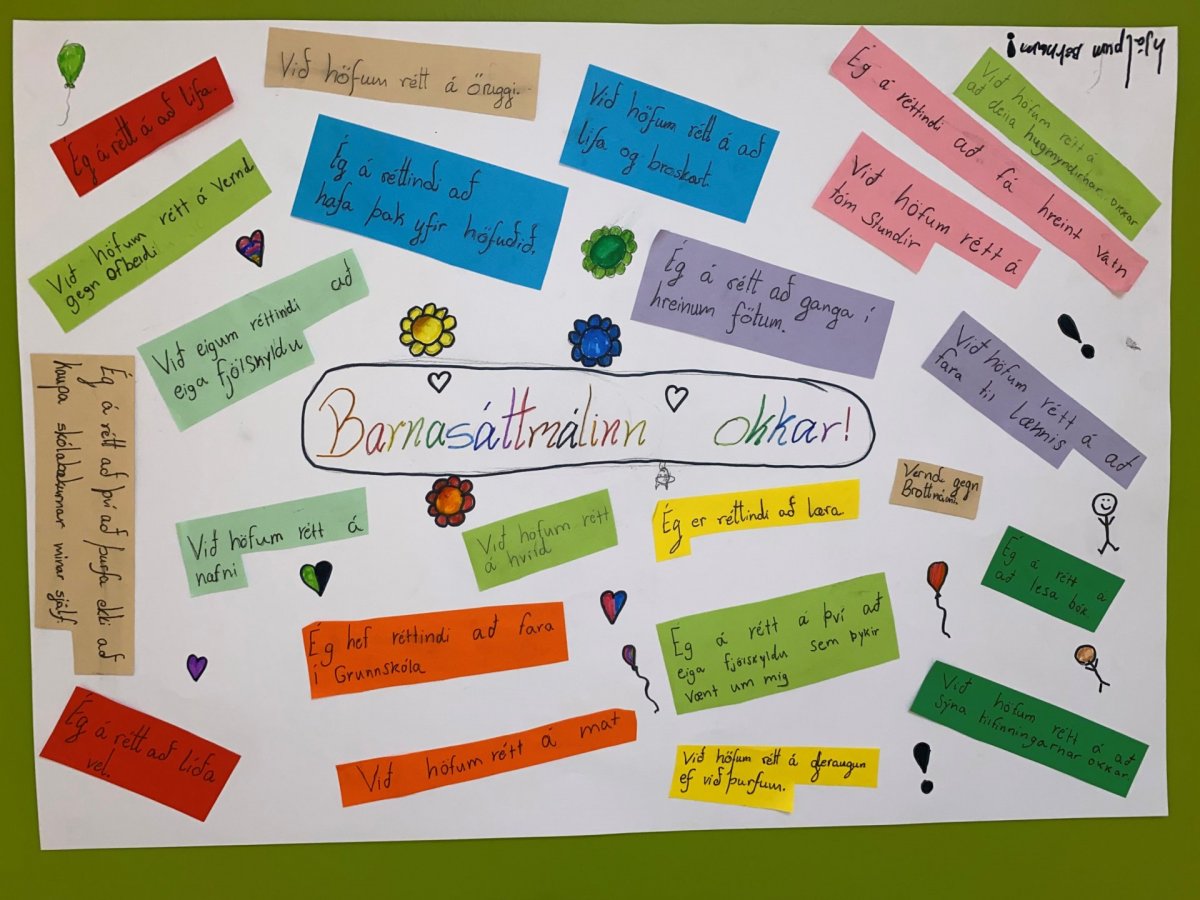 Ég á rétt á að lifa.
Við höfum rétt á öruggi.
Við höfum rétt á að
lifa og broskart.
Ég á réttindi að fá hreint vatn
Við höfum rétt á
að deila hugmyndirnar okkar
hjálpum börnum!
Við höfum rétt á vernd
gegn ofbeldi
Ég á réttindi að
hafa þak yfir höfuðið.
Við höfum rétt á
tóm stundir
Við eigum réttindi að
eiga fjölskyldu
Ég á rétt að ganga í
hreinum fötum.
Við höfum rétt á að
fara til læknis
Barnasáttmálinn okkar!
Ég á rétt að því að þurfa ekki að
kaupa skólabækurnar mínar sjálf
Við höfum rétt á
nafni
Við höfum rétt
á hvíld
Ég er réttindi að læra
Vernd gegn
Brottnámi.
Ég á rétt á
að lesa bók
Ég hef réttindi að fara
í Grunnskóla
Ég á rétt á því að
eiga fjölskyldu sem þykir
vænt um mig
Við höfum rétt á að
sýna tilfinningarnar okkar.
Ég á rétt að líða
vel.
Við höfum rétt á mat
Við höfum rétt á gleraugun
ef við þurfum.